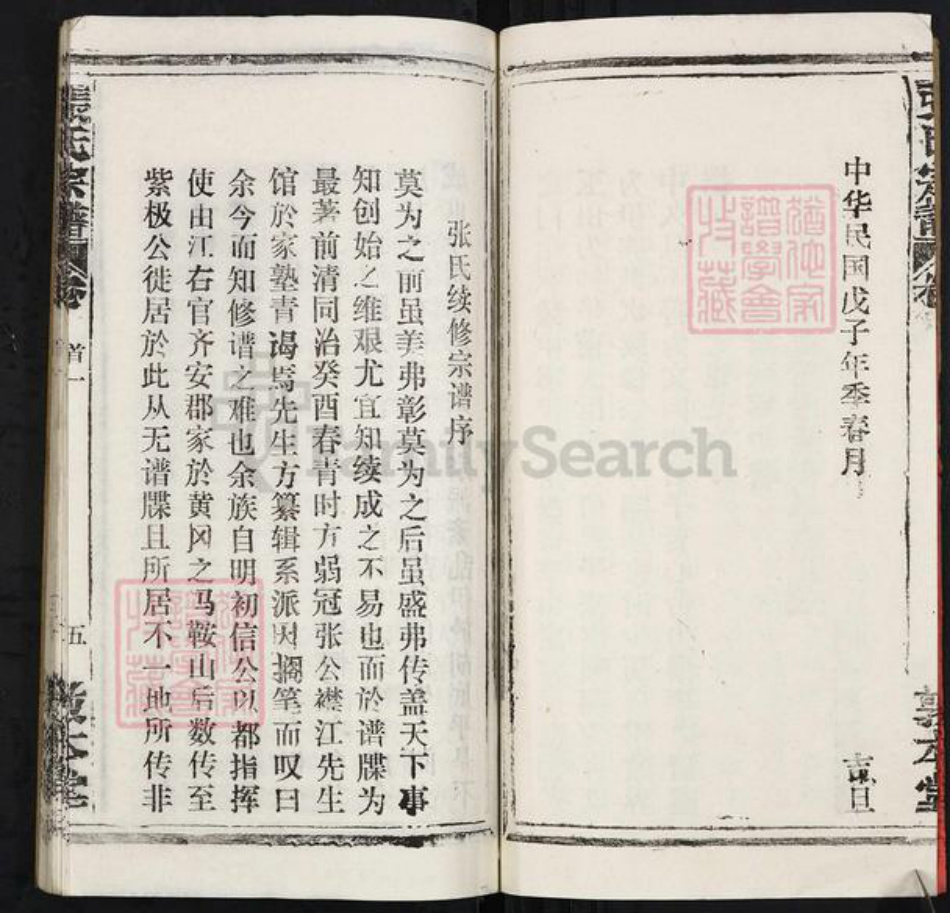 中华民国戊子年季春月
吉旦
张氏续修宗谱序
莫为之前虽美弗彰莫为之后虽盛弗传盖天下事
知创始之维艰尤宜知续成之不易也而於谱牒为
最著前清同治癸酉春青时方弱冠张公襟江先生
馆於家塾青谒焉先生方纂辑系派因搁笔而叹曰
余今而知修谱之难也余族自明初信公以都指挥
使由江右官齐安郡家於黄冈之马鞍山后数传至
紫极公徙居於此从无谱牒且所居不一地所传非
張氏宗譜
首一
五
敦本堂
FamilySearch